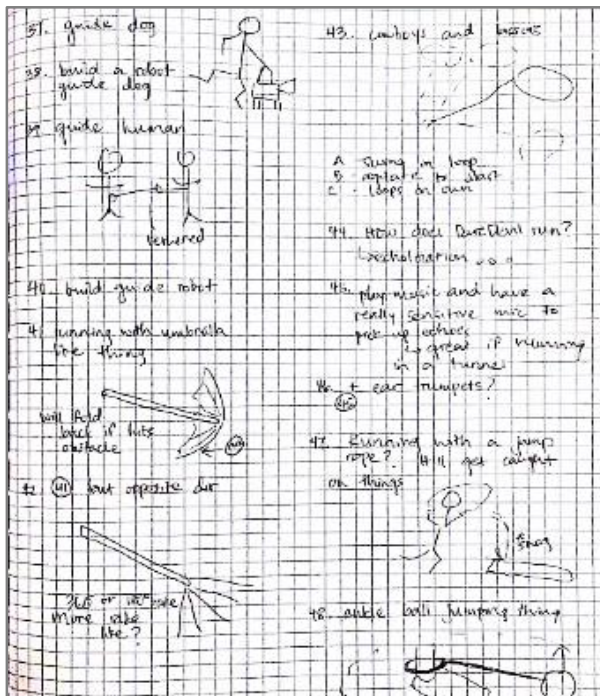 37. guide dog
38. build a robot
guide dog
39. guide human
tethered
40. build guide robot
41. running with umbrella
like thing
will fold
back if hits
obstacle
42. (41) but opposite dir
360 or
more rake
like?
43. cowboys and lassos
A swing in loop
B replace to start
C - loops on own
44. How does DareDevil run?
↳ echolocation ...
45. play music and have a
really sensitive mic to
pick up echoes
↳ great if running
in a tunnel
46. + ear trumpets?
(45)
47. Running with a jump
rope? It'll get caught
on things
snag
48. ankle ball jumping thing